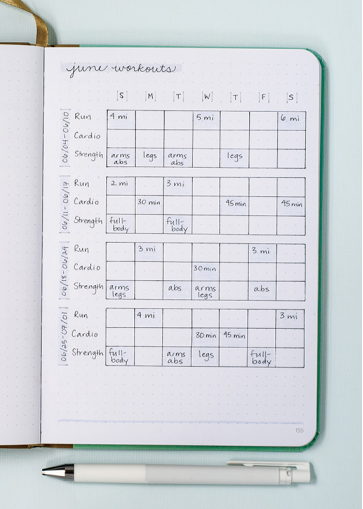 june workouts
S M T W T F S
06/04-06/10
Run 4 mi 5 mi 6 mi
Cardio
Strength arms abs legs arms abs legs
06/11-06/17
Run 2 mi 3 mi
Cardio 30 min 45 min 45 min
Strength full-body full-body
06/18-06/24
Run 3 mi 3 mi
Cardio 30 min
Strength arms legs abs arms legs abs
06/25-07/01
Run 4 mi 3 mi
Cardio 30 min 45 min
Strength full-body arms abs legs full-body